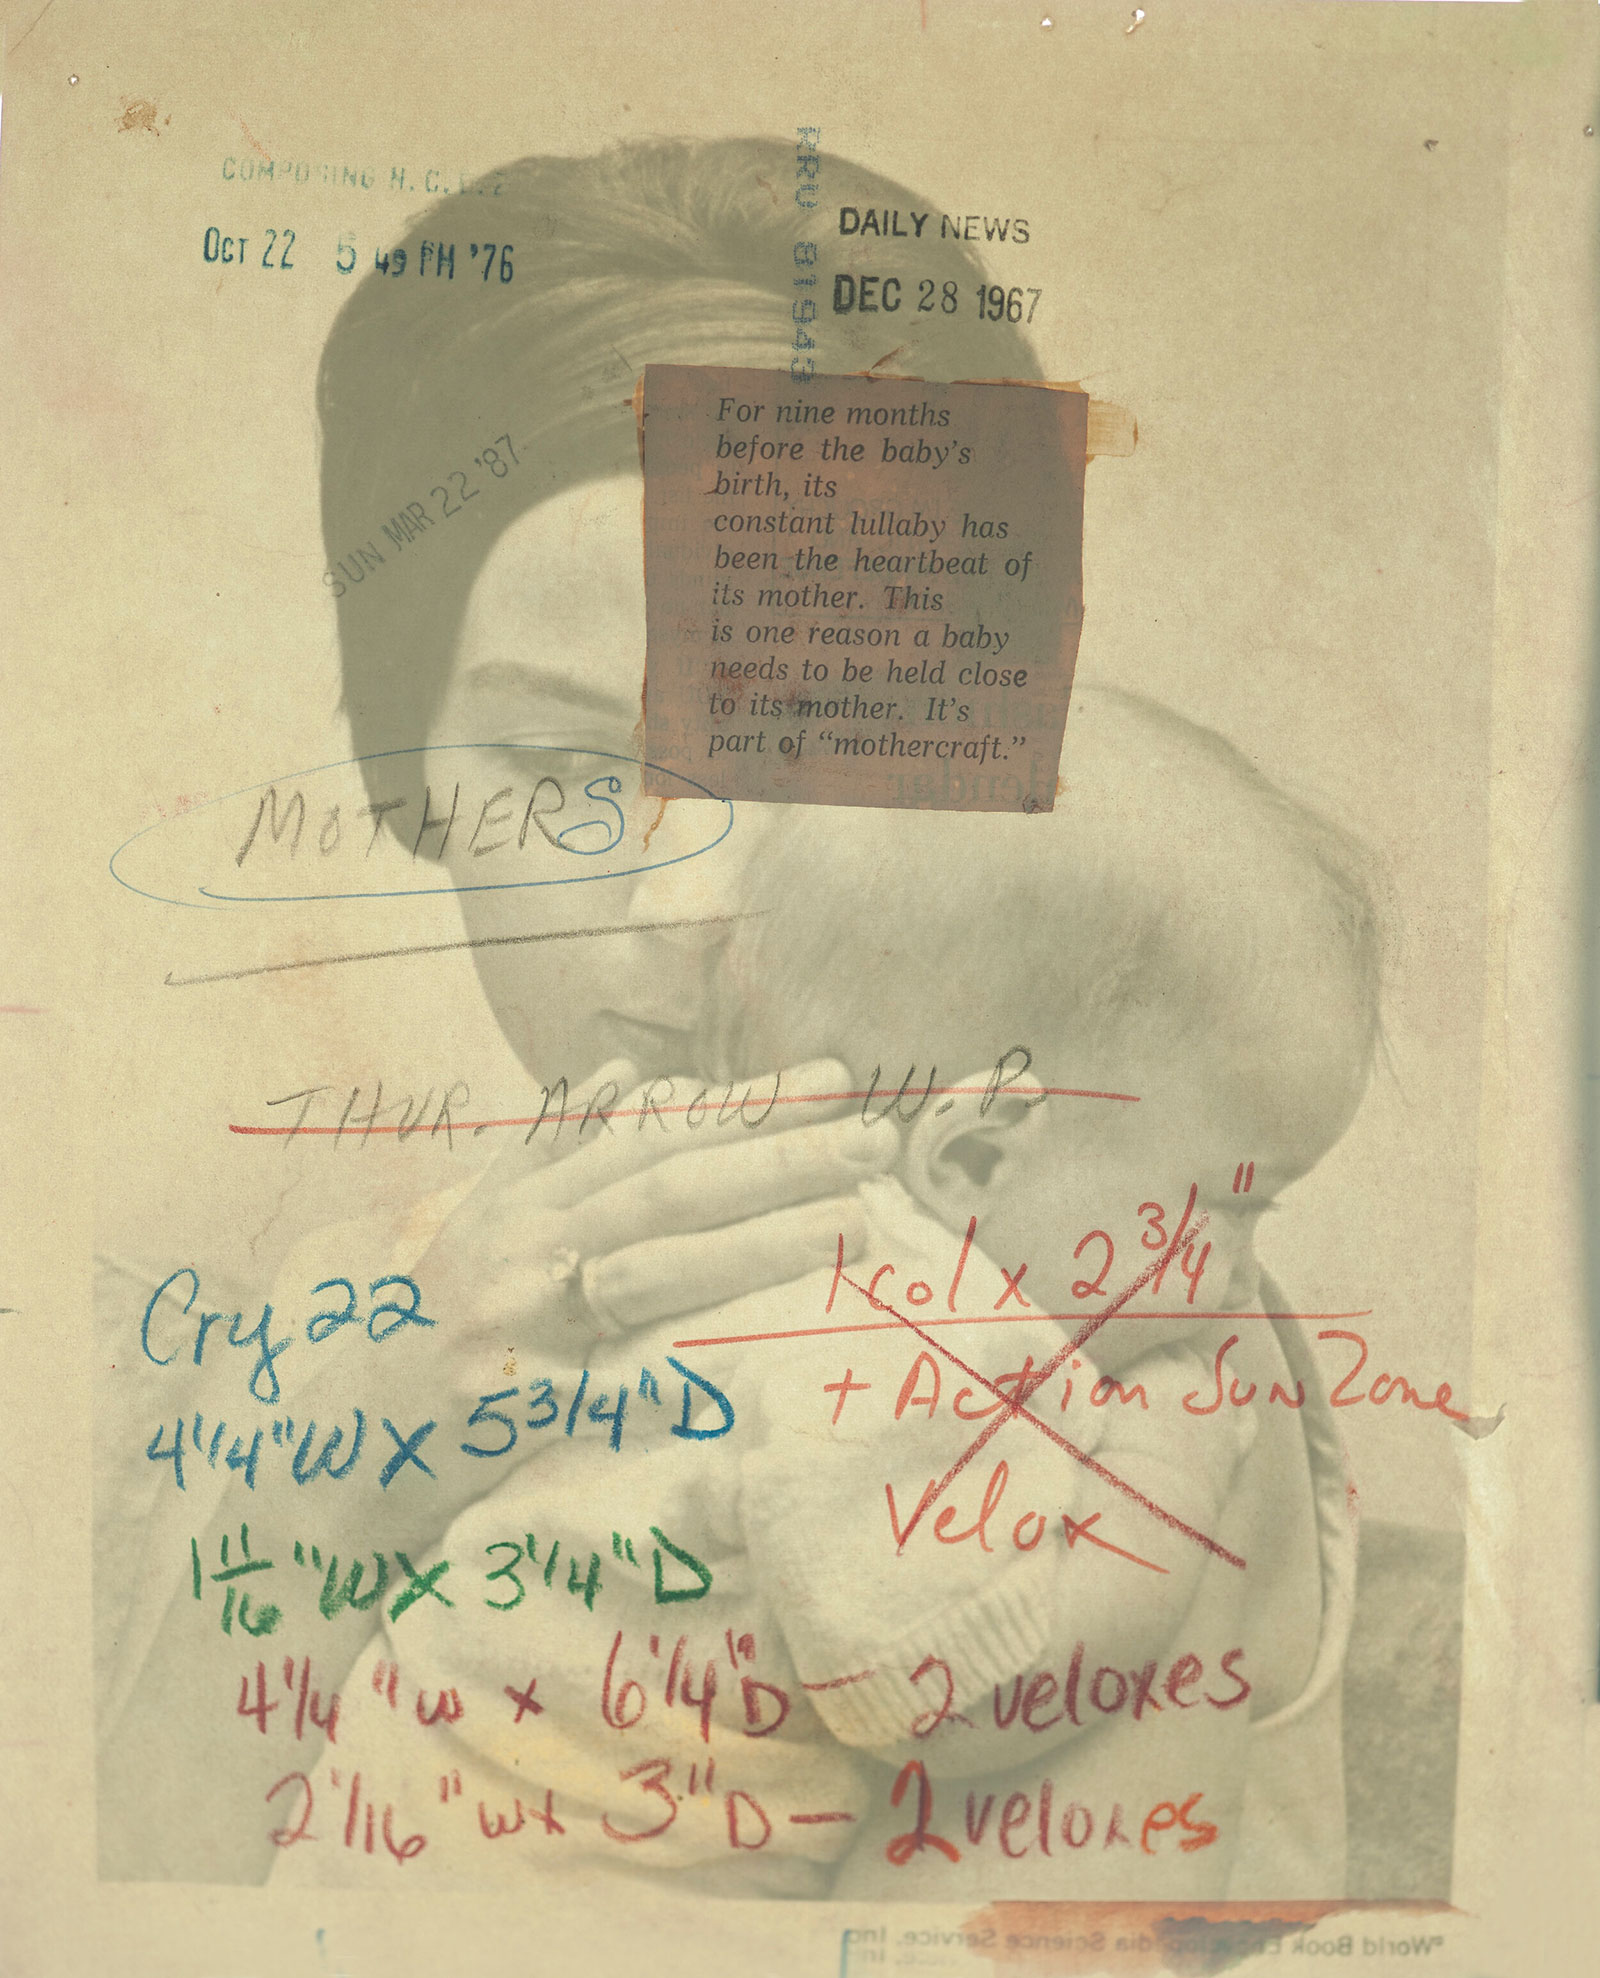 COMPOSING
OCT 22 5 49 PM '76
RRU 81943
DAILY NEWS
DEC 28 1967
SUN MAR 22 '87
For nine months
before the baby's
birth, its
constant lullaby has
been the heartbeat of
its mother. This
is one reason a baby
needs to be held close
to its mother. It's
part of “mothercraft.”
MOTHERS
THUR. ARROW W.P.
1 col x 2 3/4"
+ Action Sun Zone
Velox
Cry 22
4 1/4" W X 5 3/4" D
1 11/16 " W X 3 1/4" D
4 1/4 " w x 6 1/4" D — 2 veloxes
2 1/16 " w x 3" D — 2 veloxes
World Book Encyclopedia Science Service, Inc